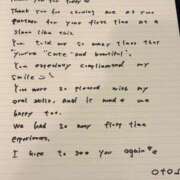 Thank you for choosing me as your
partner for your first time at a
place like this.
You told me so many times that
you're "cute and beautiful".
You especially complimented my
smile
You were so pleased with my
oral skills, and it made me
happy too.
We had so many first time
experiences.
I hope to see you again